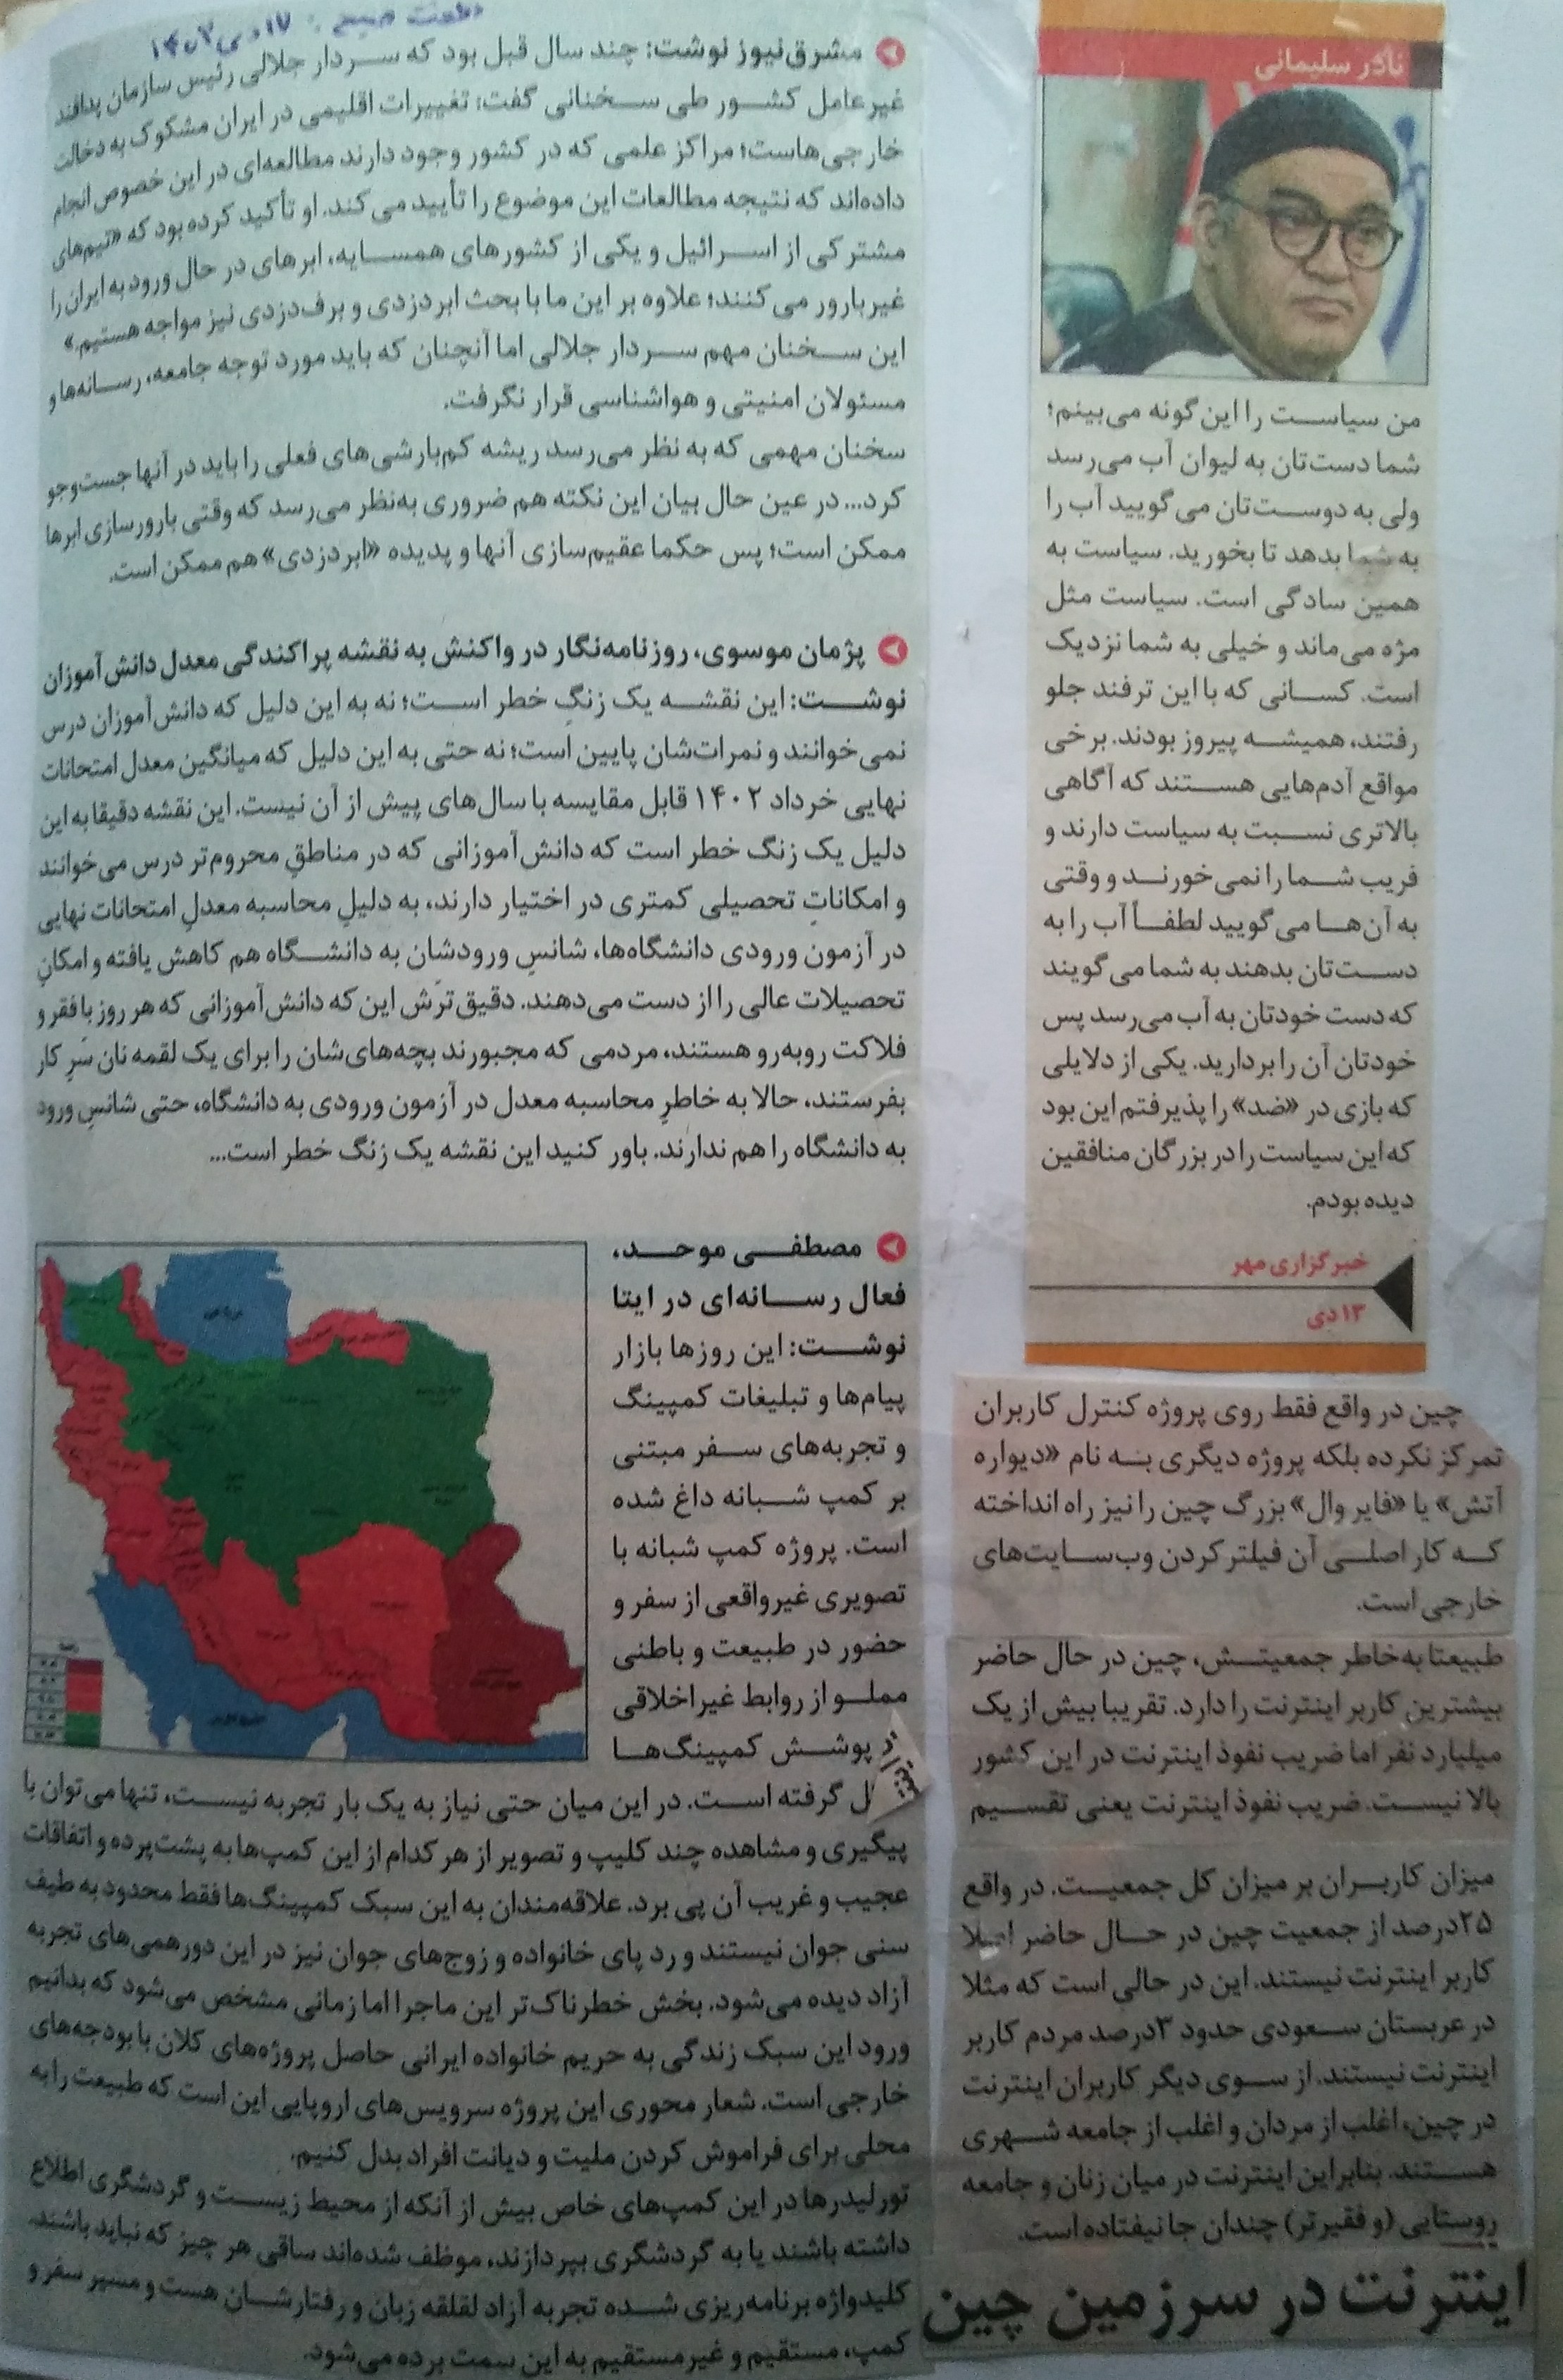 ۱۷ دی ۱۴۰۲
نادر سلیمانی
من سیاست را این گونه می‌بینم؛
شما دست‌تان به لیوان آب می‌رسد
ولی به دوست‌تان می‌گویید آب را
به شما بدهد تا بخورید. سیاست به
همین سادگی است. سیاست مثل
مژه می‌ماند و خیلی به شما نزدیک
است. کسانی که با این ترفند جلو
رفتند، همیشه پیروز بودند. برخی
مواقع آدم‌هایی هستند که آگاهی
بالاتری نسبت به سیاست دارند و
فریب شما را نمی‌خورند و وقتی
به آن‌ها می‌گویید لطفاً آب را به
دست‌تان بدهند به شما می‌گویند
که دست خودتان به آب می‌رسد پس
خودتان آن را بردارید. یکی از دلایلی
که بازی در «ضد» را پذیرفتم این بود
که این سیاست را در بزرگان منافقین
دیده بودم.
خبرگزاری مهر
۱۳ دی
چین در واقع فقط روی پروژه کنترل کاربران
تمرکز نکرده بلکه پروژه دیگری به نام «دیواره
آتش» یا «فایر وال» بزرگ چین را نیز راه انداخته
که کار اصلی آن فیلتر کردن وب‌سایت‌های
خارجی است.
طبیعتا به‌خاطر جمعیتش، چین در حال حاضر
بیشترین کاربر اینترنت را دارد. تقریبا بیش از یک
میلیارد نفر اما ضریب نفوذ اینترنت در این کشور
بالا نیست. ضریب نفوذ اینترنت یعنی تقسیم
میزان کاربران بر میزان کل جمعیت. در واقع
۲۵درصد از جمعیت چین در حال حاضر اصلا
کاربر اینترنت نیستند. این در حالی است که مثلا
در عربستان سعودی حدود ۳درصد مردم کاربر
اینترنت نیستند. از سوی دیگر کاربران اینترنت
در چین، اغلب از مردان و اغلب از جامعه شهری
هستند. بنابراین اینترنت در میان زنان و جامعه
روستایی (و فقیرتر) چندان جا نیفتاده است.
اینترنت در سرزمین چین
مشرق‌نیوز نوشت: چند سال قبل بود که سردار جلالی رئیس سازمان پدافند
غیرعامل کشور طی سخنانی گفت: تغییرات اقلیمی در ایران مشکوک به دخالت
خارجی‌هاست؛ مراکز علمی که در کشور وجود دارند مطالعه‌ای در این خصوص انجام
داده‌اند که نتیجه مطالعات این موضوع را تأیید می‌کند. او تأکید کرده بود که «تیم‌های
مشترکی از اسرائیل و یکی از کشورهای همسایه، ابرهای در حال ورود به ایران را
غیربارور می‌کنند؛ علاوه بر این ما با بحث ابردزدی و برف‌دزدی نیز مواجه هستیم.»
این سخنان مهم سردار جلالی اما آنچنان که باید مورد توجه جامعه، رسانه‌ها و
مسئولان امنیتی و هواشناسی قرار نگرفت.
سخنان مهمی که به نظر می‌رسد ریشه کم‌بارشی‌های فعلی را باید در آنها جست‌وجو
کرد... در عین حال بیان این نکته هم ضروری به‌نظر می‌رسد که وقتی بارورسازی ابرها
ممکن است؛ پس حکما عقیم‌سازی آنها و پدیده «ابردزدی» هم ممکن است.
پژمان موسوی، روزنامه‌نگار در واکنش به نقشه پراکندگی معدل دانش‌آموزان
نوشت: این نقشه یک زنگِ خطر است؛ نه به این دلیل که دانش‌آموزان درس
نمی‌خوانند و نمرات‌شان پایین است؛ نه حتی به این دلیل که میانگین معدل امتحانات
نهایی خرداد ۱۴۰۲ قابل مقایسه با سال‌های پیش از آن نیست. این نقشه دقیقا به این
دلیل یک زنگ خطر است که دانش‌آموزانی که در مناطقِ محروم‌تر درس می‌خوانند
و امکاناتِ تحصیلی کمتری در اختیار دارند، به دلیلِ محاسبه معدلِ امتحانات نهایی
در آزمون ورودی دانشگاه‌ها، شانسِ ورودشان به دانشگاه هم کاهش یافته و امکانِ
تحصیلات عالی را از دست می‌دهند. دقیق‌ترَش این که دانش‌آموزانی که هر روز با فقر و
فلاکت روبه‌رو هستند، مردمی که مجبورند بچه‌های‌شان را برای یک لقمه نان سَرِ کار
بفرستند، حالا به خاطرِ محاسبه معدل در آزمون ورودی به دانشگاه، حتی شانسِ ورود
به دانشگاه را هم ندارند. باور کنید این نقشه یک زنگ خطر است...
مصطفی موحد،
فعال رسانه‌ای در ایتا
نوشت: این روزها بازار
پیام‌ها و تبلیغات کمپینگ
و تجربه‌های سفر مبتنی
بر کمپ شبانه داغ شده
است. پروژه کمپ شبانه با
تصویری غیرواقعی از سفر و
حضور در طبیعت و باطنی
مملو از روابط غیراخلاقی
در پوشش کمپینگ‌ها
گرفته است. در این میان حتی نیاز به یک بار تجربه نیست، تنها می‌توان با
پیگیری و مشاهده چند کلیپ و تصویر از هر کدام از این کمپ‌ها به پشت‌پرده و اتفاقات
عجیب و غریب آن پی برد. علاقه‌مندان به این سبک کمپینگ‌ها فقط محدود به طیف
سنی جوان نیستند و رد پای خانواده و زوج‌های جوان نیز در این دورهمی‌های تجربه
آزاد دیده می‌شود. بخش خطرناک‌تر این ماجرا اما زمانی مشخص می‌شود که بدانیم
ورود این سبک زندگی به حریم خانواده ایرانی حاصل پروژه‌های کلان با بودجه‌های
خارجی است. شعار محوری این پروژه سرویس‌های اروپایی این است که طبیعت را به
محلی برای فراموش کردن ملیت و دیانت افراد بدل کنیم.
تورلیدرها در این کمپ‌های خاص بیش از آنکه از محیط زیست و گردشگری اطلاع
داشته باشند یا به گردشگری بپردازند، موظف شده‌اند ساقی هر چیز که نباید باشند.
کلیدواژه برنامه‌ریزی شده تجربه آزاد لقلقه زبان و رفتارشان هست و مسیر سفر و
کمپ، مستقیم و غیرمستقیم به این سمت برده می‌شود.